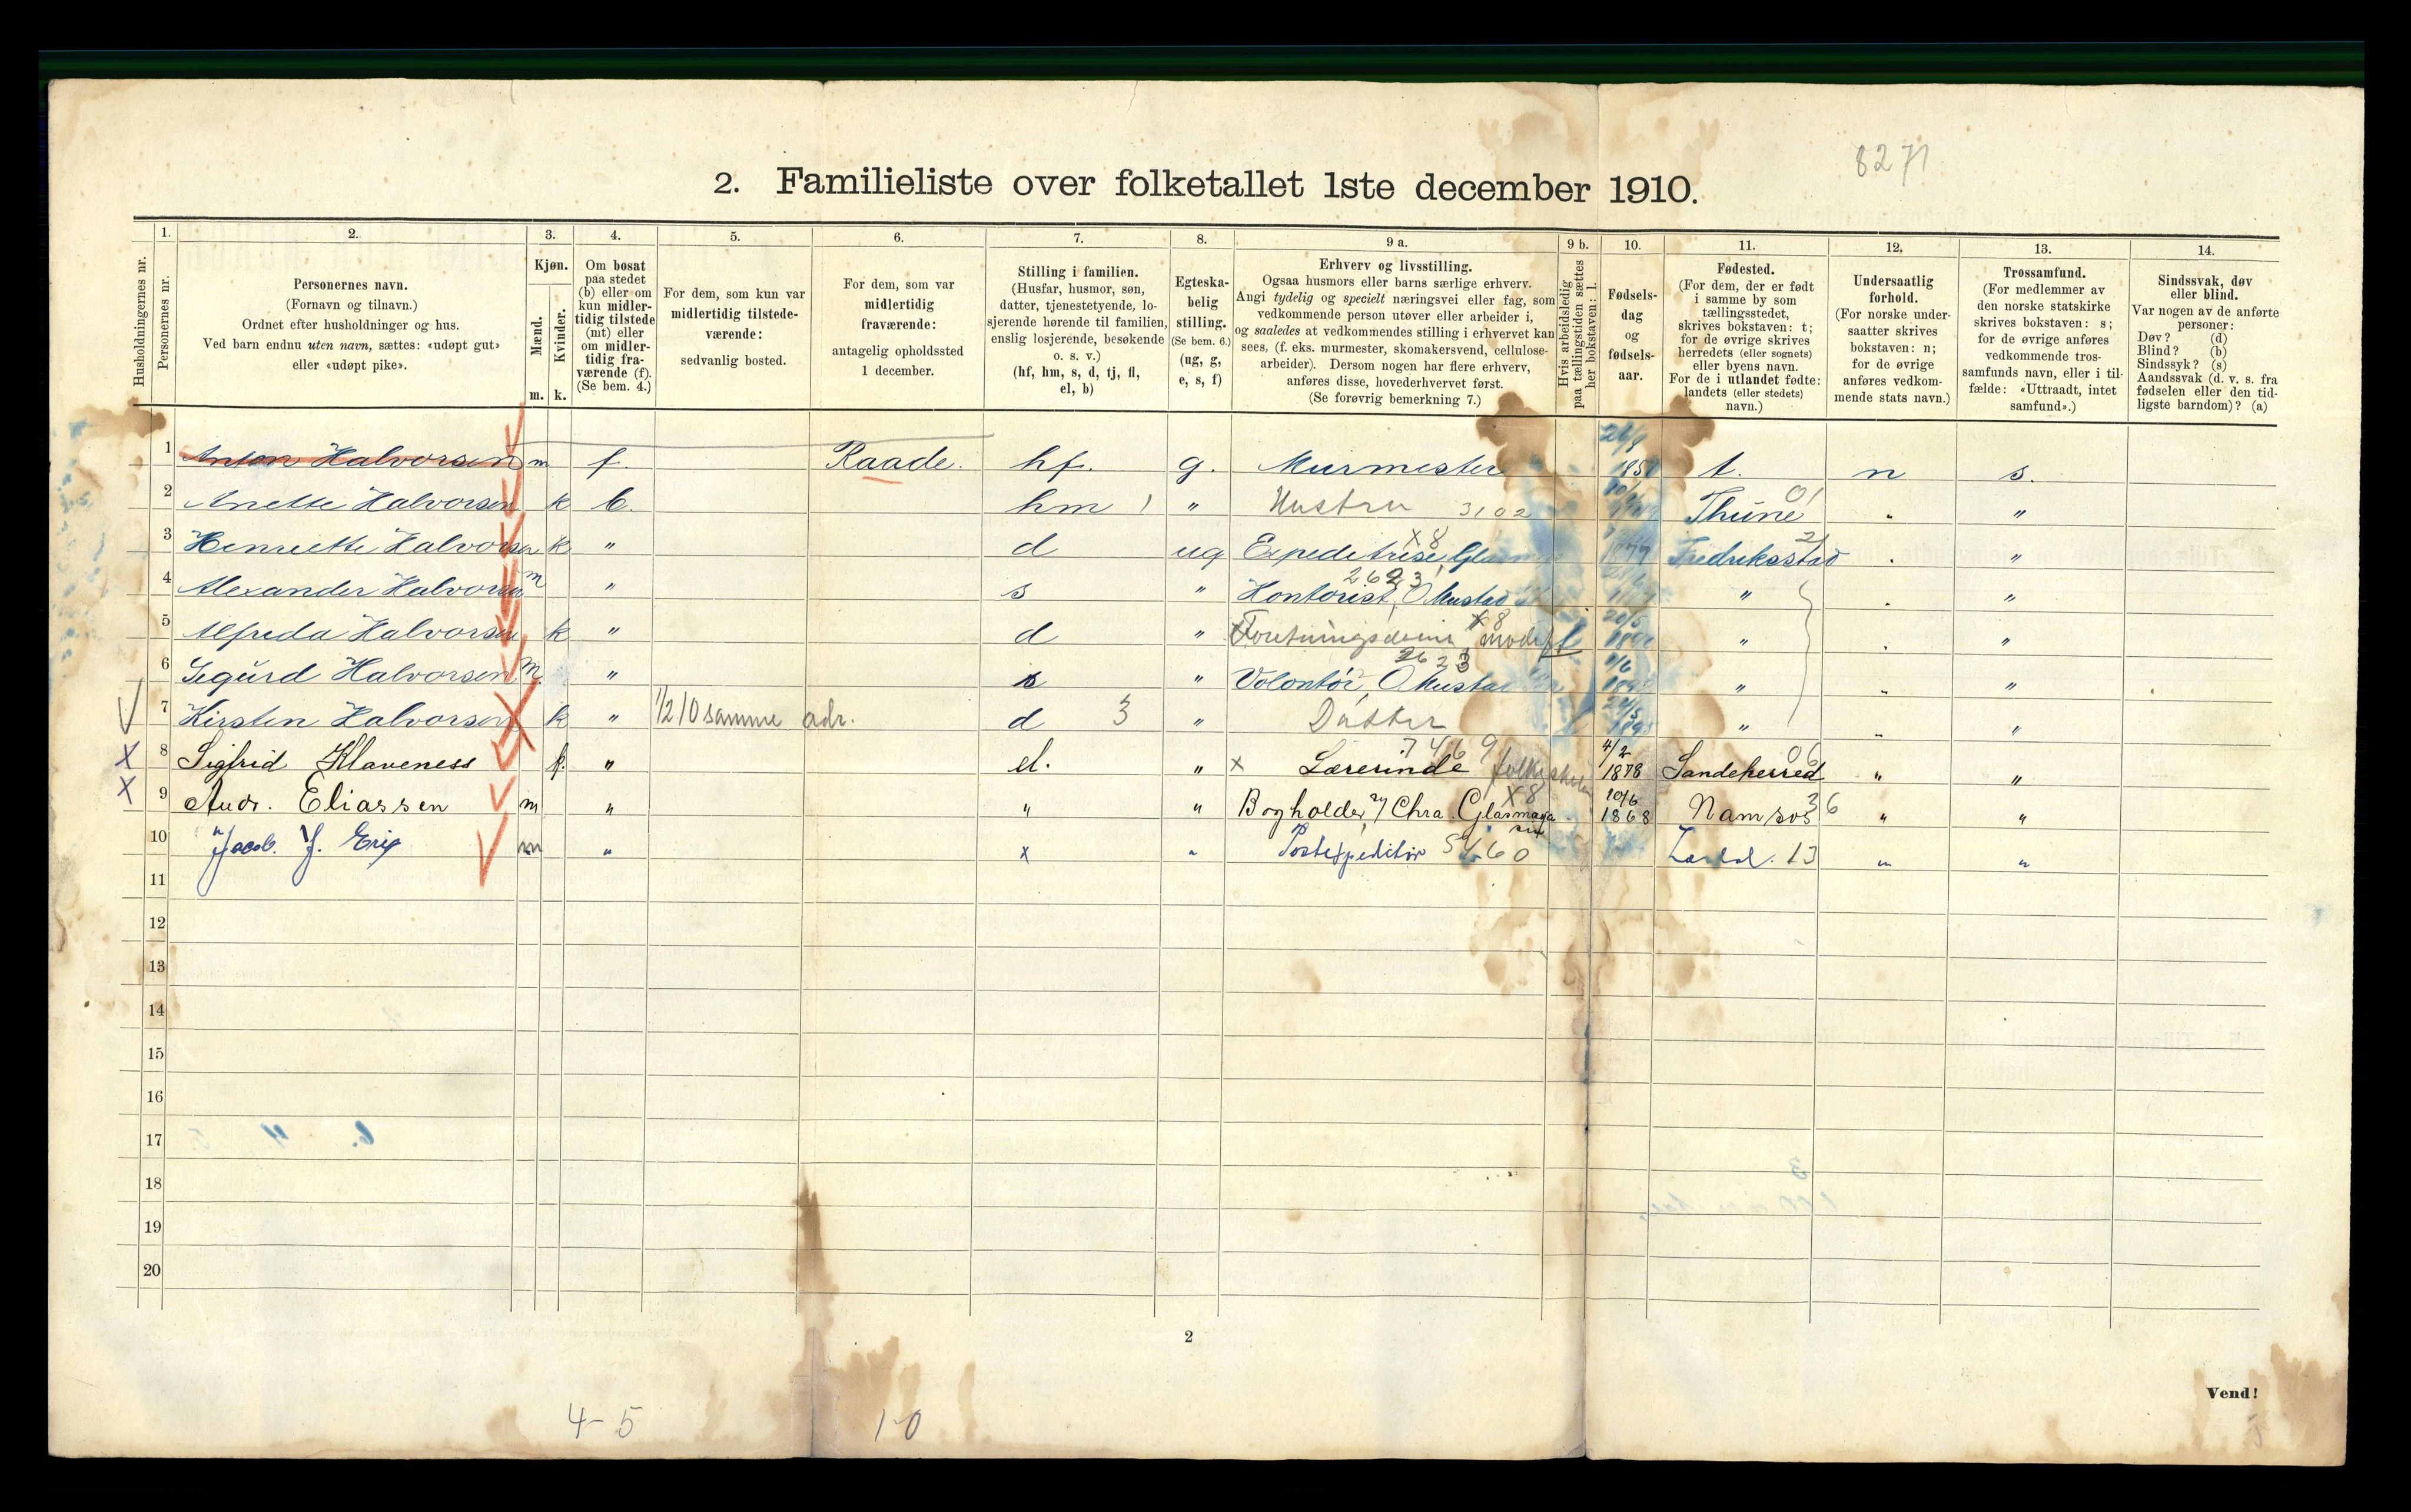 8271
2. Familieliste over folketallet 1ste december 1910.
Husholdningernes nr.
1.
Personernes nr.
2.
Personernes navn.
(Fornavn og tilnavn.)
Ordnet efter husholdninger og hus.
Ved barn endnu uten navn, sættes: «udøpt gut»
eller «udøpt pike».
3.
Kjøn.
Mænd.
Kvinder.
m. k.
4.
Om bosat
paa stedet
(b) eller om
kun midler-
tidig tilstede
(mt) eller
om midler-
tidig fra-
værende (f).
(Se bem. 4.)
5.
For dem, som kun var
midlertidig tilstede-
værende:
sedvanlig bosted.
6.
For dem, som var
midlertidig
fraværende:
antagelig opholdssted
1 december.
7.
Stilling i familien.
(Husfar, husmor, søn,
datter, tjenestetyende, lo-
sjerende hørende til familien,
enslig losjerende, besøkende
o. s. v.)
(hf, hm, s, d, tj, fl,
el, b)
8.
Egteska-
belig
stilling.
(Se bem. 6.)
(ug, g,
e, s, f)
9 a.
Erhverv og livsstilling.
Ogsaa husmors eller barns særlige erhverv.
Angi tydelig og specielt næringsvei eller fag, som
vedkommende person utøver eller arbeider i,
og saaledes at vedkommendes stilling i erhvervet kan
sees, (f. eks. murmester, skomakersvend, cellulose-
arbeider). Dersom nogen har flere erhverv,
anføres disse, hovederhvervet først.
(Se forøvrig bemerkning 7.)
9 b.
Hvis arbeidsledig
paa tællingstiden sættes
her bokstaven: l.
10.
Fødsels-
dag
og
fødsels-
aar.
11.
Fødested.
(For dem, der er født
i samme by som
tællingsstedet,
skrives bokstaven: t;
for de øvrige skrives
herredets (eller sognets)
eller byens navn.
For de i utlandet fødte:
landets (eller stedets)
navn.)
12.
Undersaatlig
forhold.
(For norske under-
saatter skrives
bokstaven: n;
for de øvrige
anføres vedkom-
mende stats navn.)
13.
Trossamfund.
(For medlemmer av
den norske statskirke
skrives bokstaven: s;
for de øvrige anføres
vedkommende tros-
samfunds navn, eller i til-
fælde: «Uttraadt, intet
samfund».)
14.
Sindssvak, døv
eller blind.
Var nogen av de anførte
personer:
Døv? (d)
Blind? (b)
Sindssyk? (s)
Aandssvak (d. v. s. fra
fødselen eller den tid-
ligste barndom)? (a)
1 Anton Halvorsen m f. Raade. hf. g. Murmester t. n s.
2 Anette Halvorsen k b. hm 1 " Hustru 3102 Thune 01 " "
3 Henriette Halvorsen k " d ug Expeditrise, x8 1877 Fredriksstad 21 " "
4 Alexander Halvorsen m " s " Kontorist, O Mustad 2623 " " "
5 Alfreda Halvorsen k " d " Foretningsdame x8 l 20/5 " " "
6 Sigurd Halvorsen m. " s " Volontør, O Mustad 2623 " " "
7 Kirsten Halvorsen k " 1/12 10 samme adr. d 3 " Datter " " "
8 Sigfrid Klaveness k. " el. " x Lærerinde folkeskolen 7469 4/2 1878 Sandeherred 06 " "
9 Andr. Eliassen m " " " Bogholder v/ Chra. Glasmagasin x8 10/6 1868 Namsos 36 " "
10 Jacob J. m " x " Postexpeditør 5460 13 " "
11
12
13
14
15
16
17
18
19
20
2
Vend!
4-5
1-0